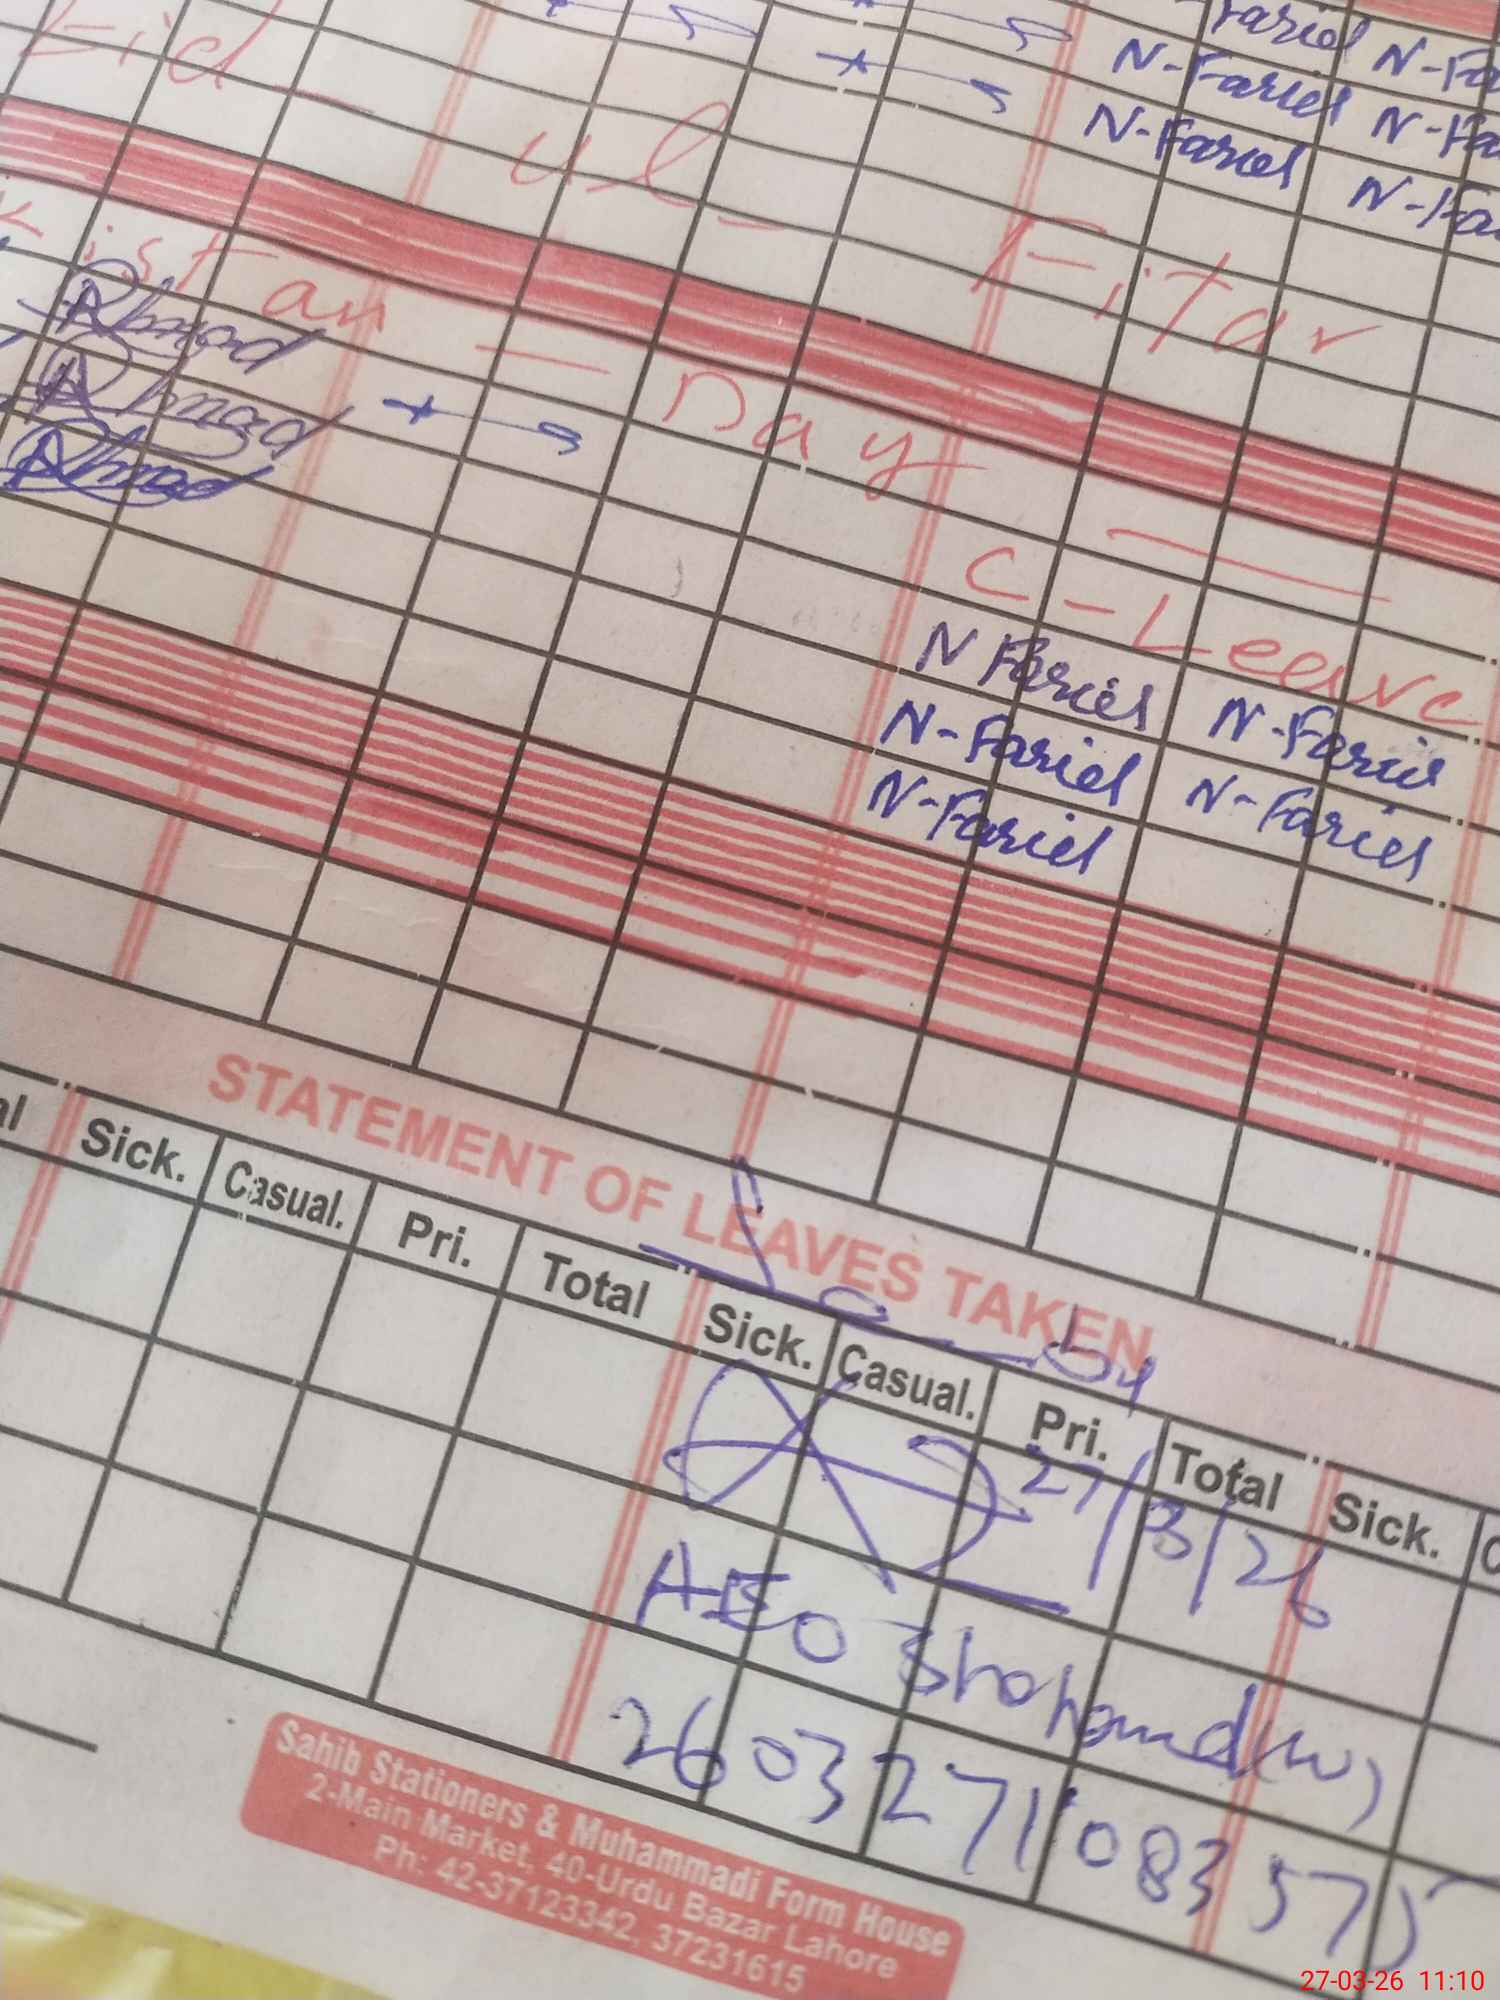 Fariol N-Fa
N-Fariel N-Fa
N-Fariel N-Fa
Eid - ul - Fitar
kistan - Day
Ahmad
Ahmad
Ahmad
C-Leave
N Fariel N-Fariel
N-Fariel N-Fariel
N-Fariel
STATEMENT OF LEAVES TAKEN
al Sick. Casual. Pri. Total Sick. Casual. Pri. Total Sick. C
27/3/26
AEO
260327108357
Sahib Stationers & Muhammadi Form House
2-Main Market, 40-Urdu Bazar Lahore
Ph: 42-37123342, 37231615
27-03-26 11:10